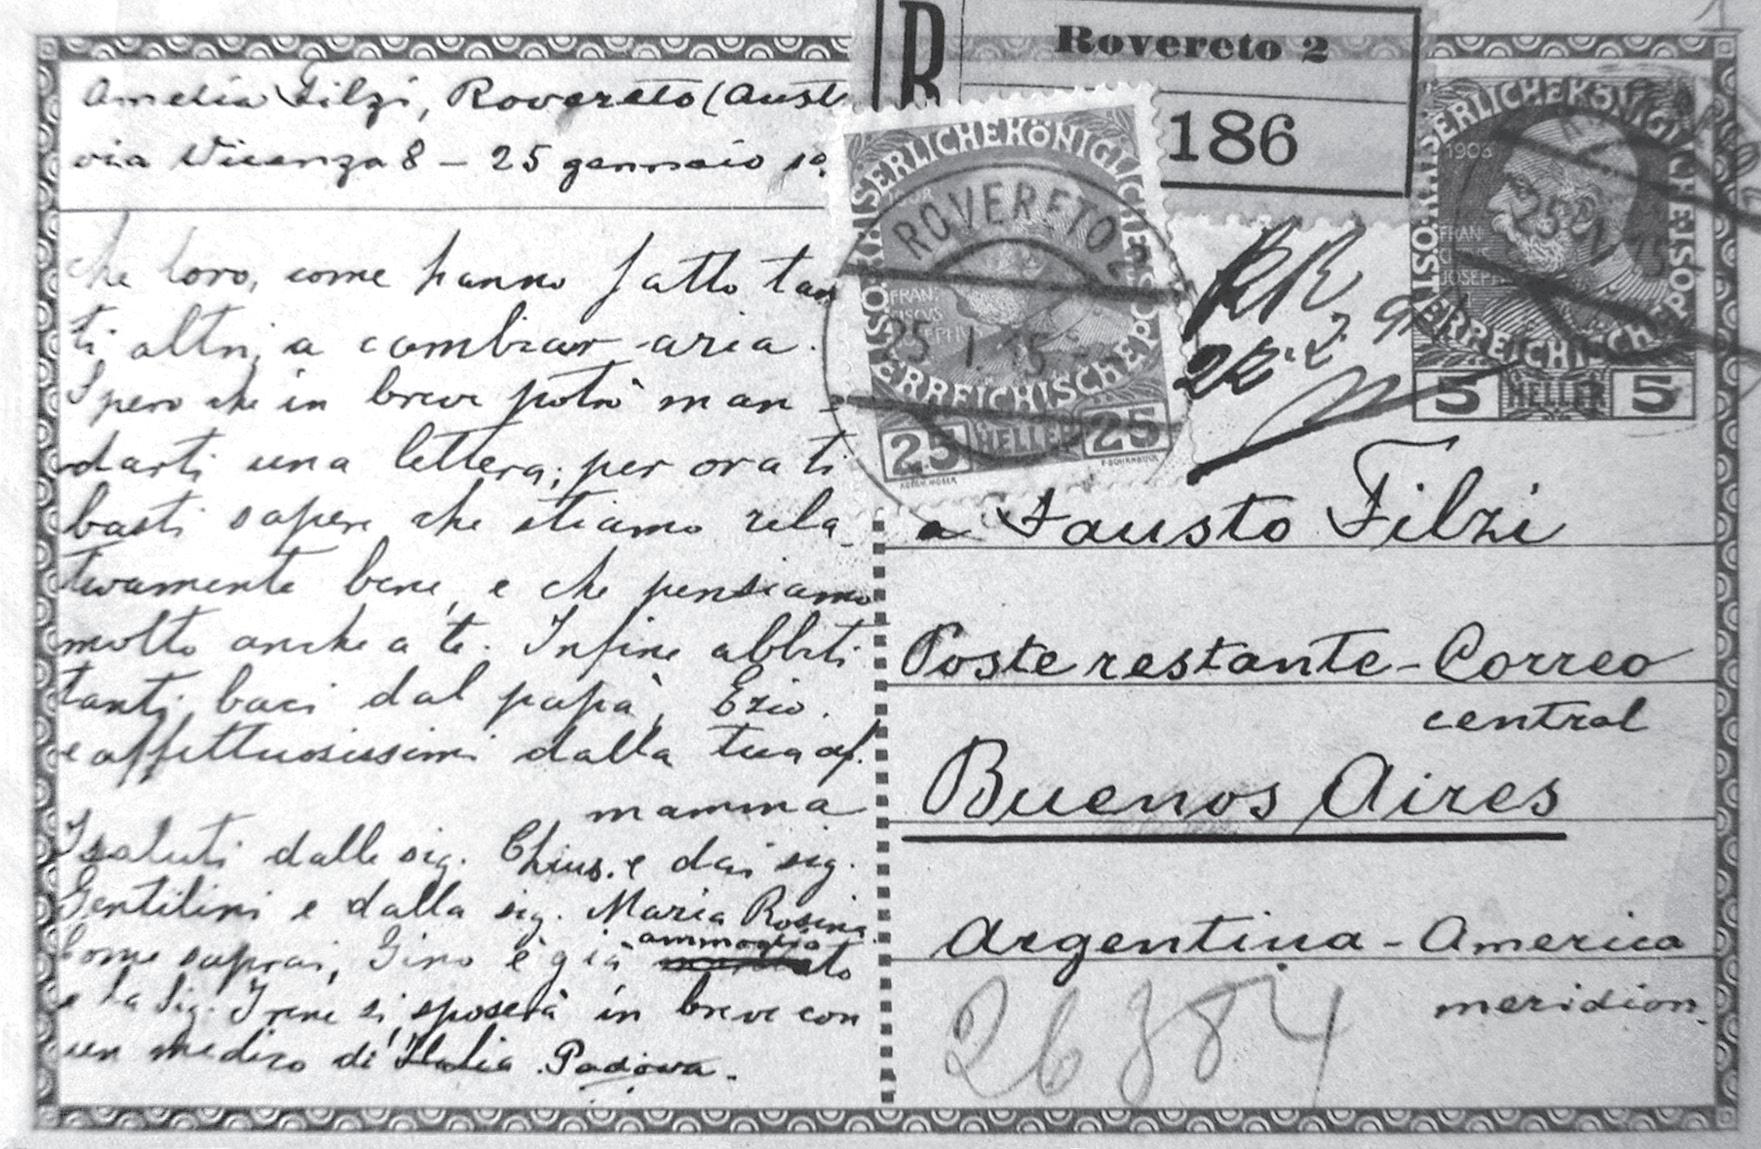 Amelia Filzi, Rovereto (Aust
via Vicenza 8 - 25 gennaio
che loro, come hanno fatto tan
ti altri, a cambiar aria.
Spero che in breve potrò man-
darti una lettera; per ora ti
basti sapere che stiamo rela_
tivamente bene, e che pensiamo
molto anche a te. Infine abbiti
tanti baci dal papà, Ezio.
e affettuosissimi dalla tua af.
mamma
I saluti dalle sig. Chius. e dai sig.
Gentilini e dalla sig. Maria Rosina.
Come saprai, Gino è già ammogliato
e la Sig. Irene si sposerà in breve con
un medico di Italia Padova.
R
Rovereto 2
186
KAISERLICHE KÖNIGLICHE
ÖSTERREICHISCHE POST
FRAN
CISCVS
JOSEPHVS
ROVERETO 2
25 I 15
25 HELLER 25
KAISERLICHE KÖNIGLICHE
1908
FRAN
CISCVS
JOSEPH
25 I 15
ÖSTERREICHISCHE POST
5 HELLER 5
RR
a Fausto Filzi
Poste restante - Correo
central
Buenos Aires
Argentina - America
meridion.
26384